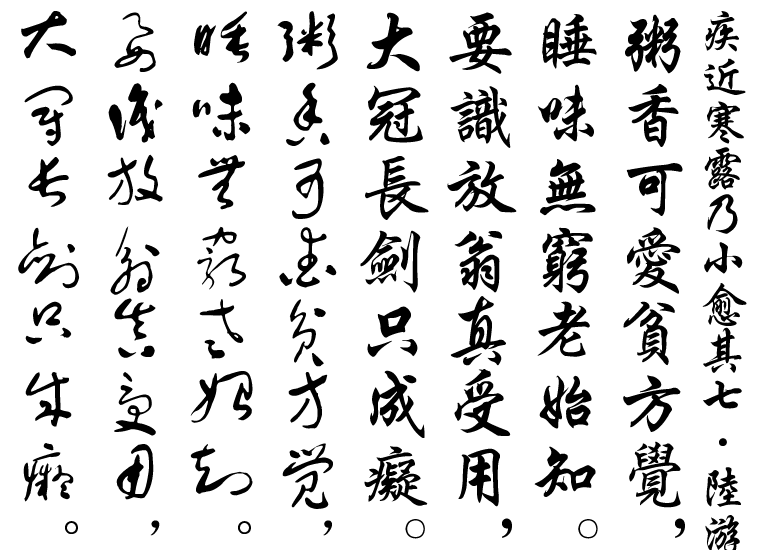 疾近寒露乃小愈其七·陸游
粥香可愛貧方覺，
睡味無窮老始知。
要識放翁真受用，
大冠長劍只成癡。
粥香可爱貧方觉，
睡味無窮老始知。
要識放翁真受用，
大冠長劍只成癡。